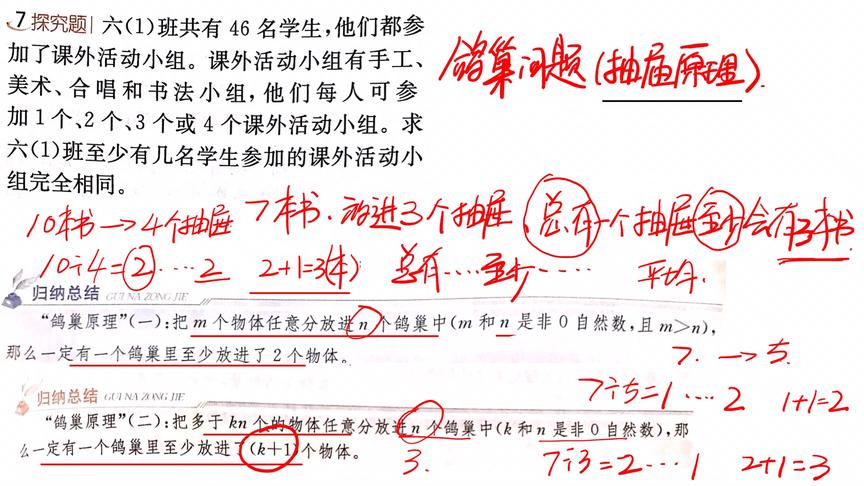 7 探究题| 六(1)班共有 46 名学生,他们都参
加了课外活动小组。课外活动小组有手工、
美术、合唱和书法小组,他们每人可参
加1个、2个、3个或4个课外活动小组。求
六(1)班至少有几名学生参加的课外活动小
组完全相同。
鸽巢问题(抽屉原理).
10本书→4个抽屉 7本书.放进3个抽屉、总有一个抽屉至少会有3本书
10÷4=2……2 2+1=3(本) 总有……至少…… 平均.
归纳总结 GUI NA ZONG JIE
“鸽巢原理”(一):把 m 个物体任意分放进 n 个鸽巢中(m 和 n 是非 0 自然数,且 m>n),
那么一定有一个鸽巢里至少放进了 2 个物体。
7. → 5.
7÷5=1……2 1+1=2
归纳总结 GUI NA ZONG JIE
“鸽巢原理”(二):把多于 kn 个的物体任意分放进 n 个鸽巢中(k 和 n 是非 0 自然数),那
么一定有一个鸽巢里至少放进了(k+1)个物体。
3. 7÷3=2……1 2+1=3